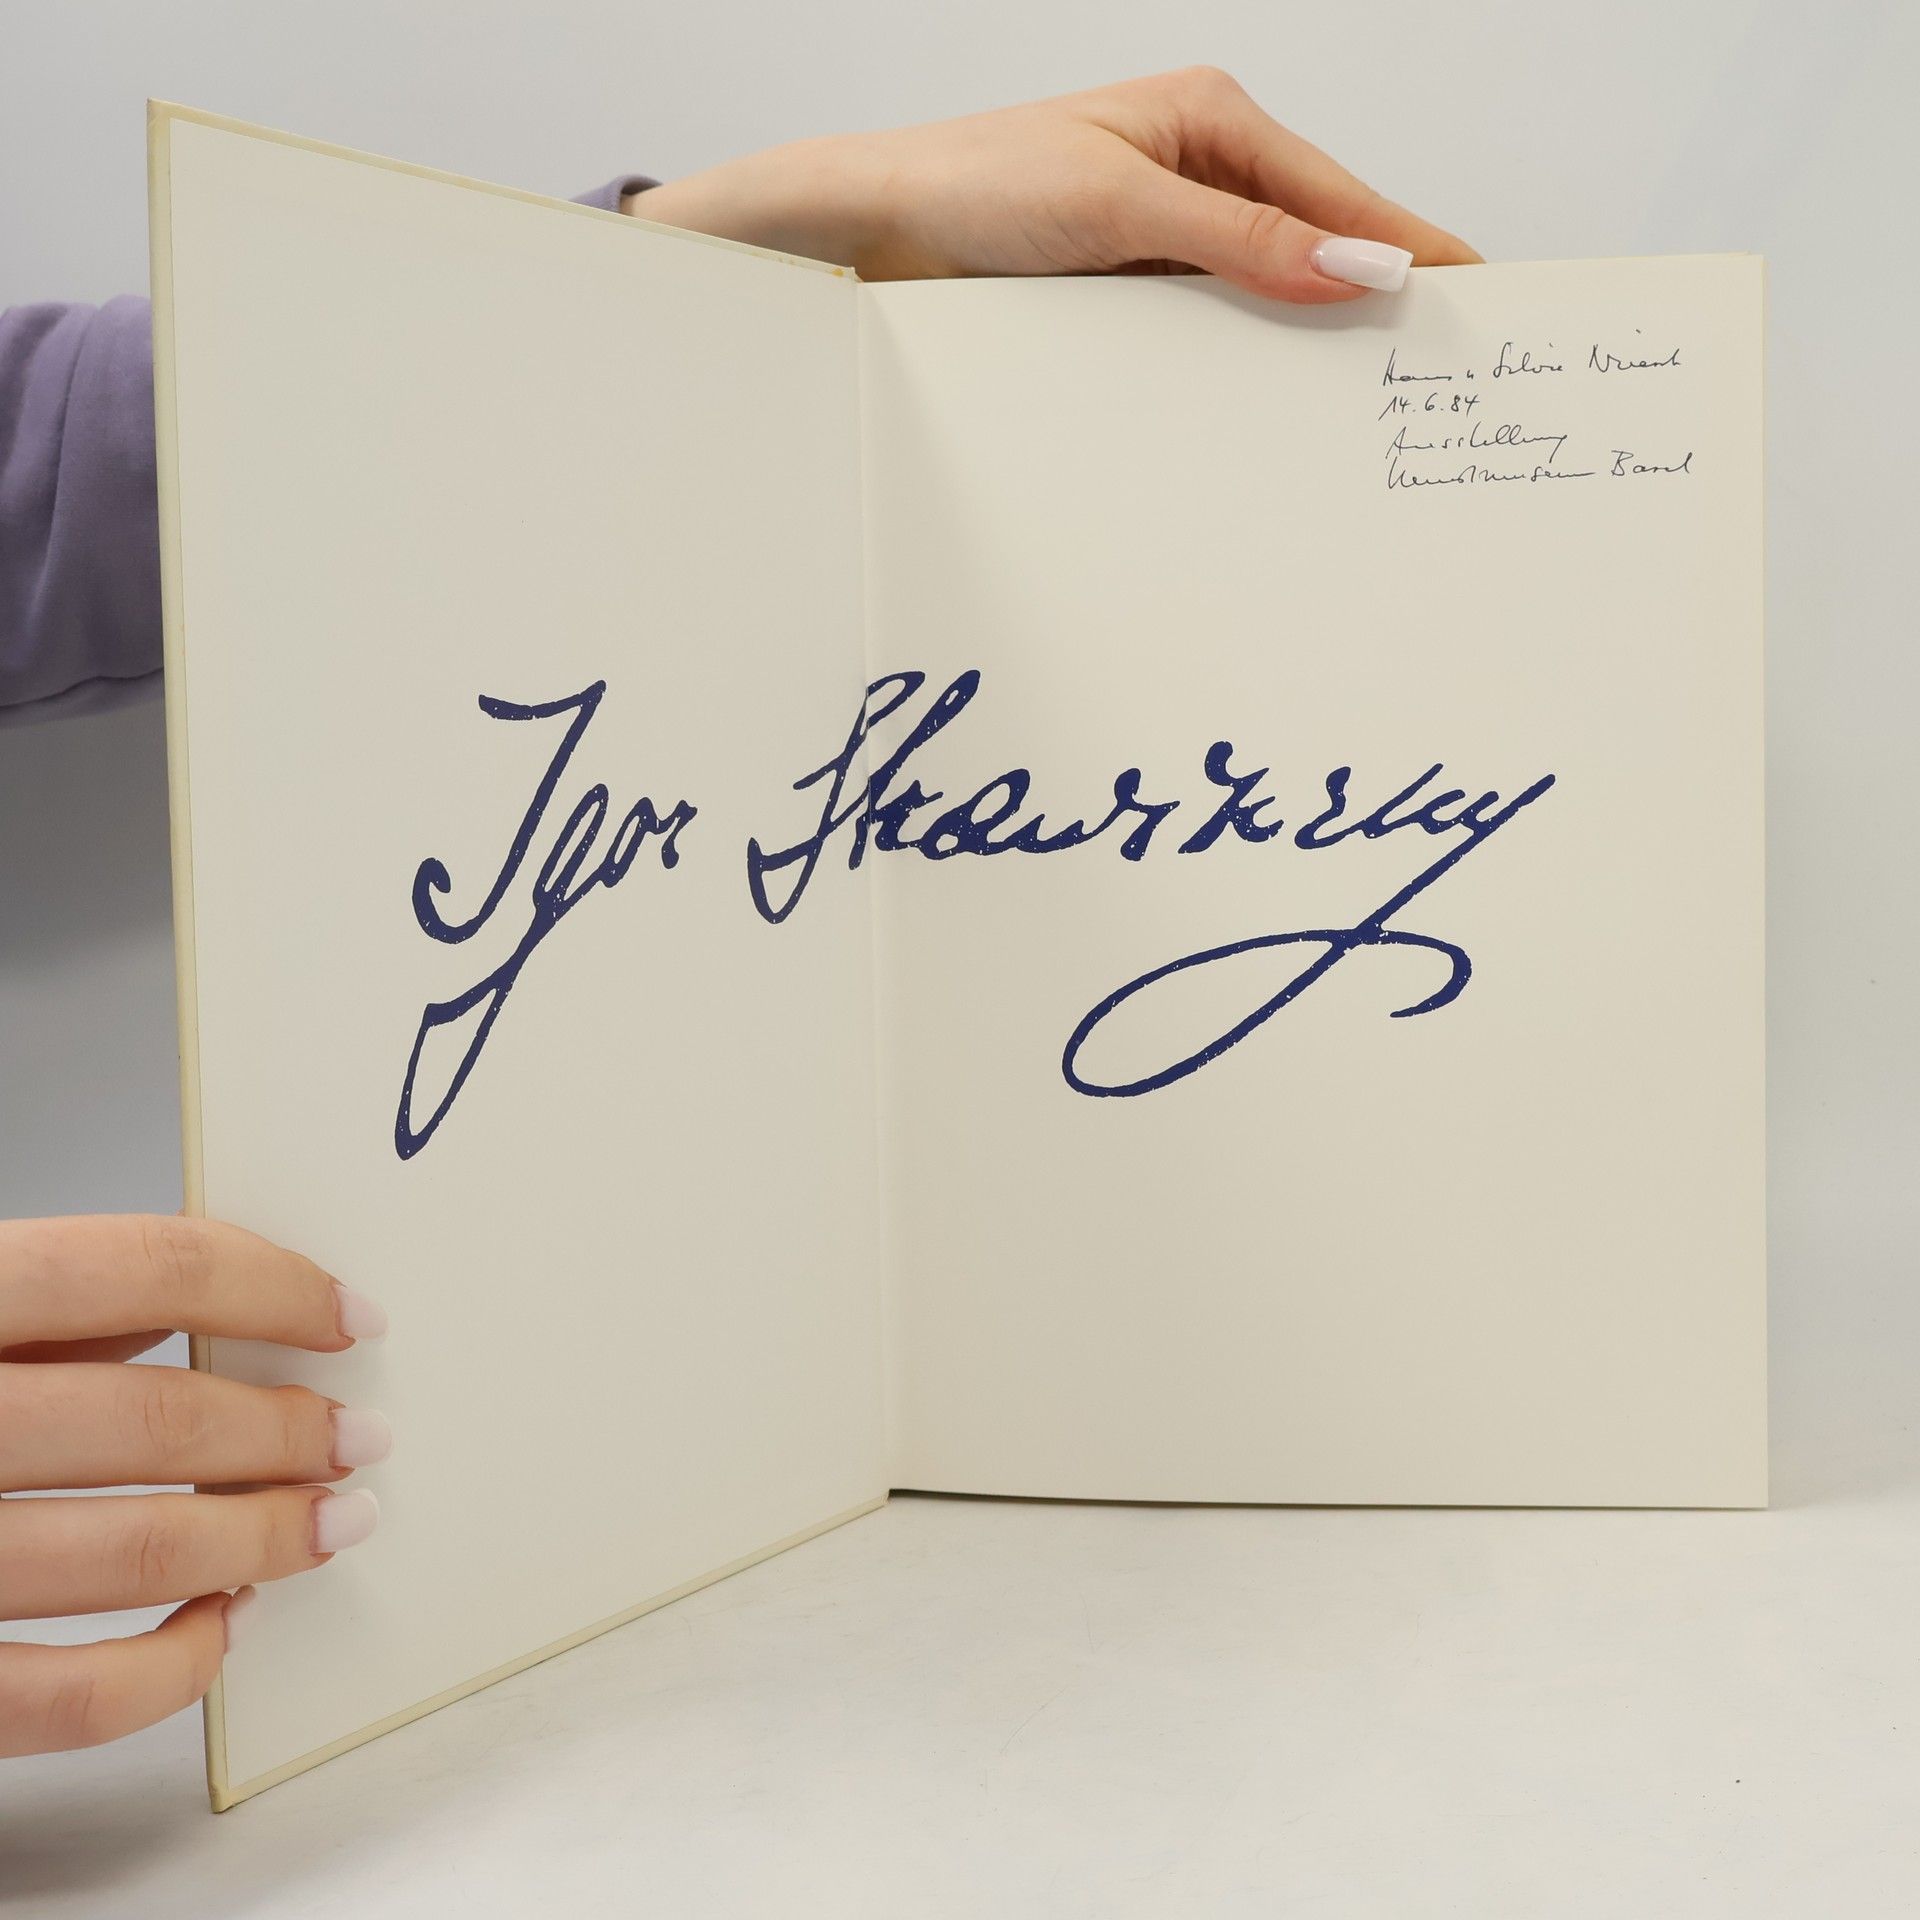 Igor Strawinsky
Hans u Silvia
14.6.84
Ausstellung
Kunstmuseum Basel